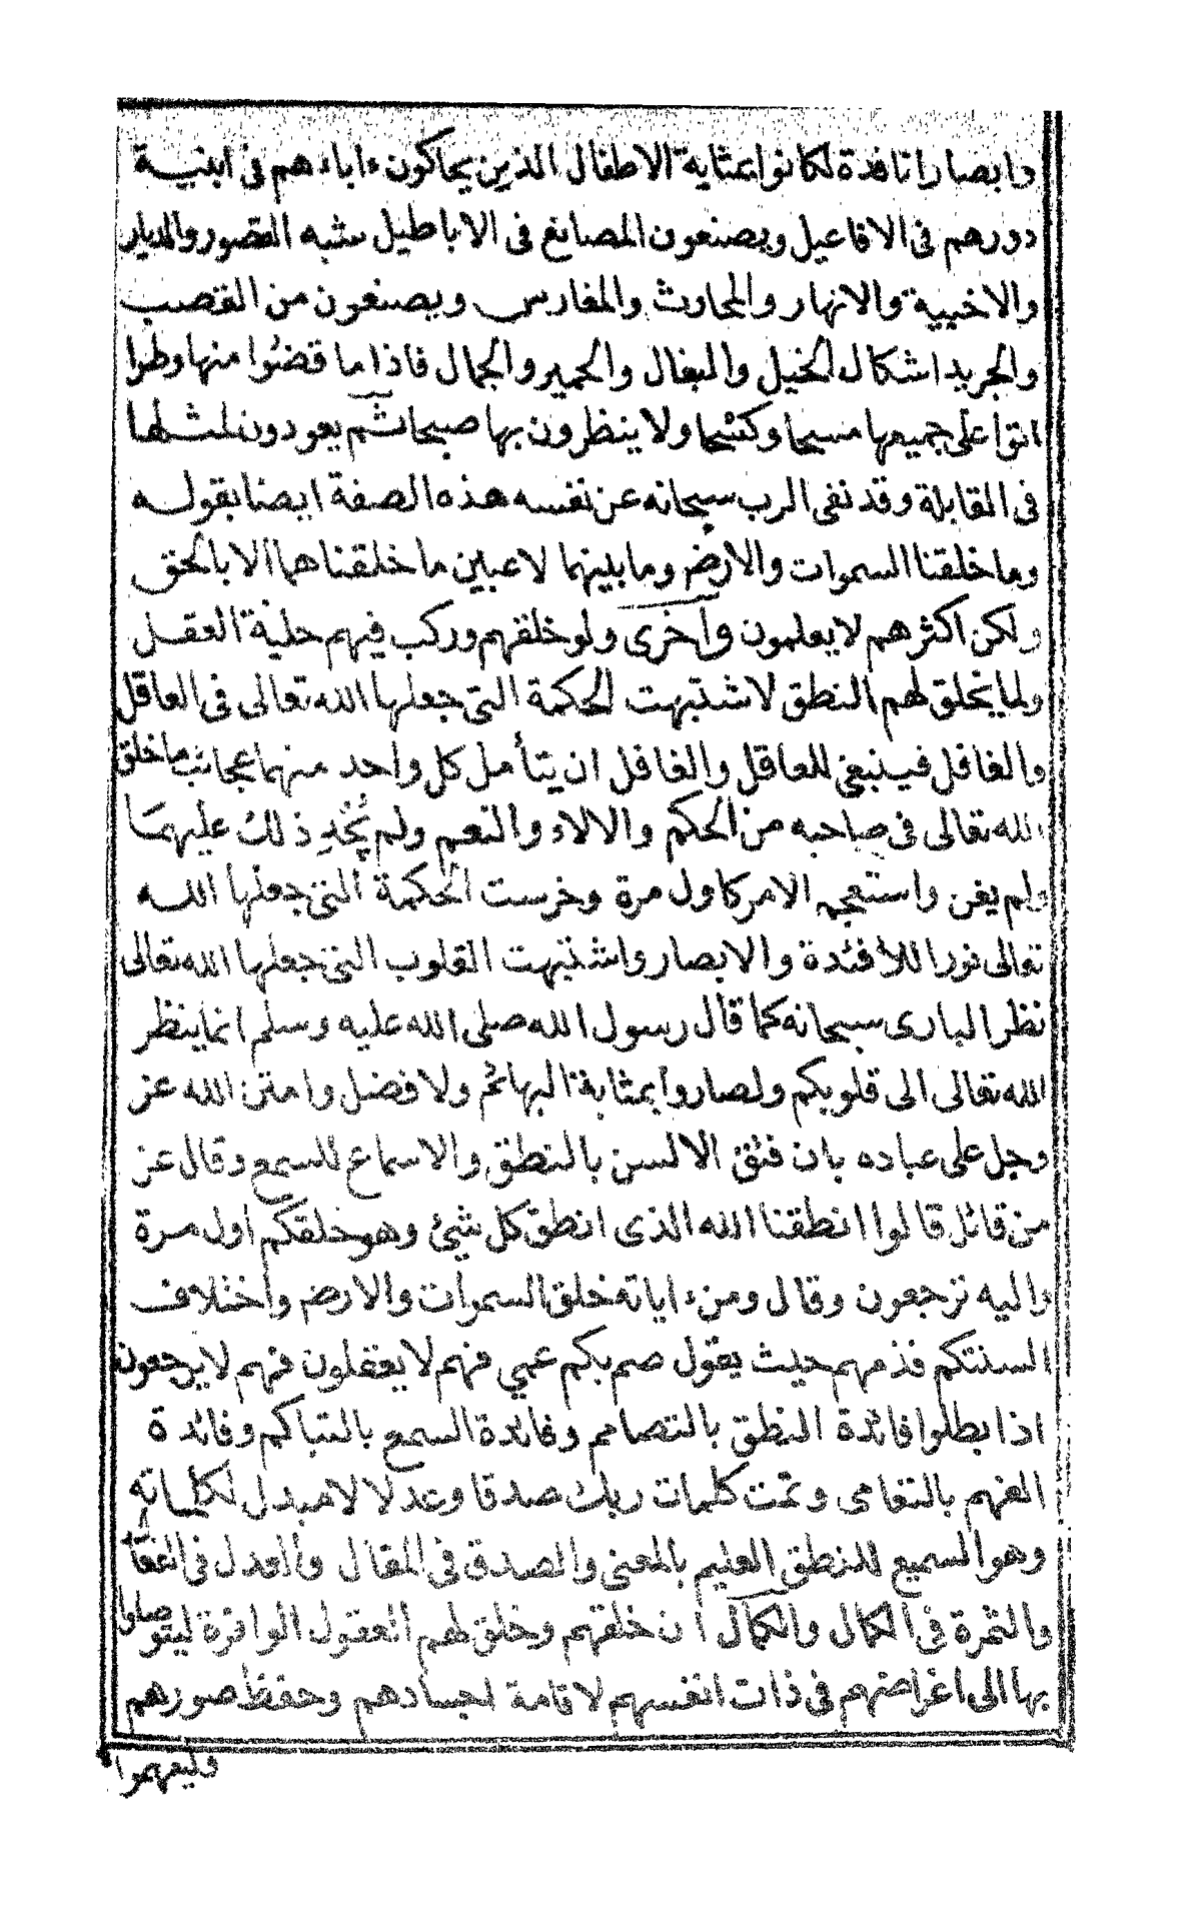 وابصارا نافذة لكانوا بمثابة الاطفال الذين يحاكون ءاباءهم فى ابنية
دورهم فى الافاعيل ويصنعون المصانع فى الاباطيل شبه القصور والديار
والاخبية والانهار والمحارث والمغارس ويصنعون من القصب
والجريد اشكال الخيل والبغال والحمير والجمال فاذا ما قضوا منها وطرا
اتوا على جميعها مسحا وكسحا ولا ينظرون بها صبحا ثم يعودون لمثلها
فى المقابلة وقد نفى الرب سبحانه عن نفسه هذه الصفة ايضا بقوله
وما خلقنا السموات والارض وما بينهما لاعبين ما خلقناهما الا بالحق
ولكن اكثرهم لا يعلمون واخرى ولو خلقهم وركب فيهم حلية العقل
ولما يخلق لهم النطق لاشتبهت الحكمة التى جعلها الله تعالى فى العاقل
والغافل فينبغى للعاقل والغافل ان يتأمل كل واحد منهما عجائب ما خلق
الله تعالى فى صاحبه من الحكم والالاء والنعم ولم يُجْدِ ذلك عليهما
ولم يغن واستعجم الامر كاول مرة وخرست الحكمة التى جعلها الله
تعالى نورا للأفئدة والابصار واشتبهت القلوب التى جعلها الله تعالى
نظر البارى سبحانه كما قال رسول الله صلى الله عليه وسلم انما ينظر
الله تعالى الى قلوبكم ولصاروا بمثابة البهائم ولا فضل وامتن الله عز
وجل على عباده بان فتق الالسن بالنطق والاسماع للسمع وقال عز
من قائل قالوا انطقنا الله الذى انطق كل شيئ وهو خلقكم اول مرة
واليه ترجعون وقال ومن ءاياته خلق السموات والارض واختلاف
السنتكم فذمهم حيث يقول صم بكم عمي فهم لا يعقلون فهم لا يرجعون
اذا بطلوا فائدة النطق بالتصامم وفائدة السمع بالتباكم وفائدة
الفهم بالتعامى وتمت كلمات ربك صدقا وعدلا لا مبدل لكلماته
وهو السميع للنطق العليم بالمعنى والصدق فى المقال والعدل فى
والثمرة فى الكمال والكمال ان خلقهم وخلق لهم العقول الوافرة ليتوصلوا
بها الى اغراضهم فى ذات انفسهم لاقامة اجسادهم وحفظ صورهم
وليفهموا